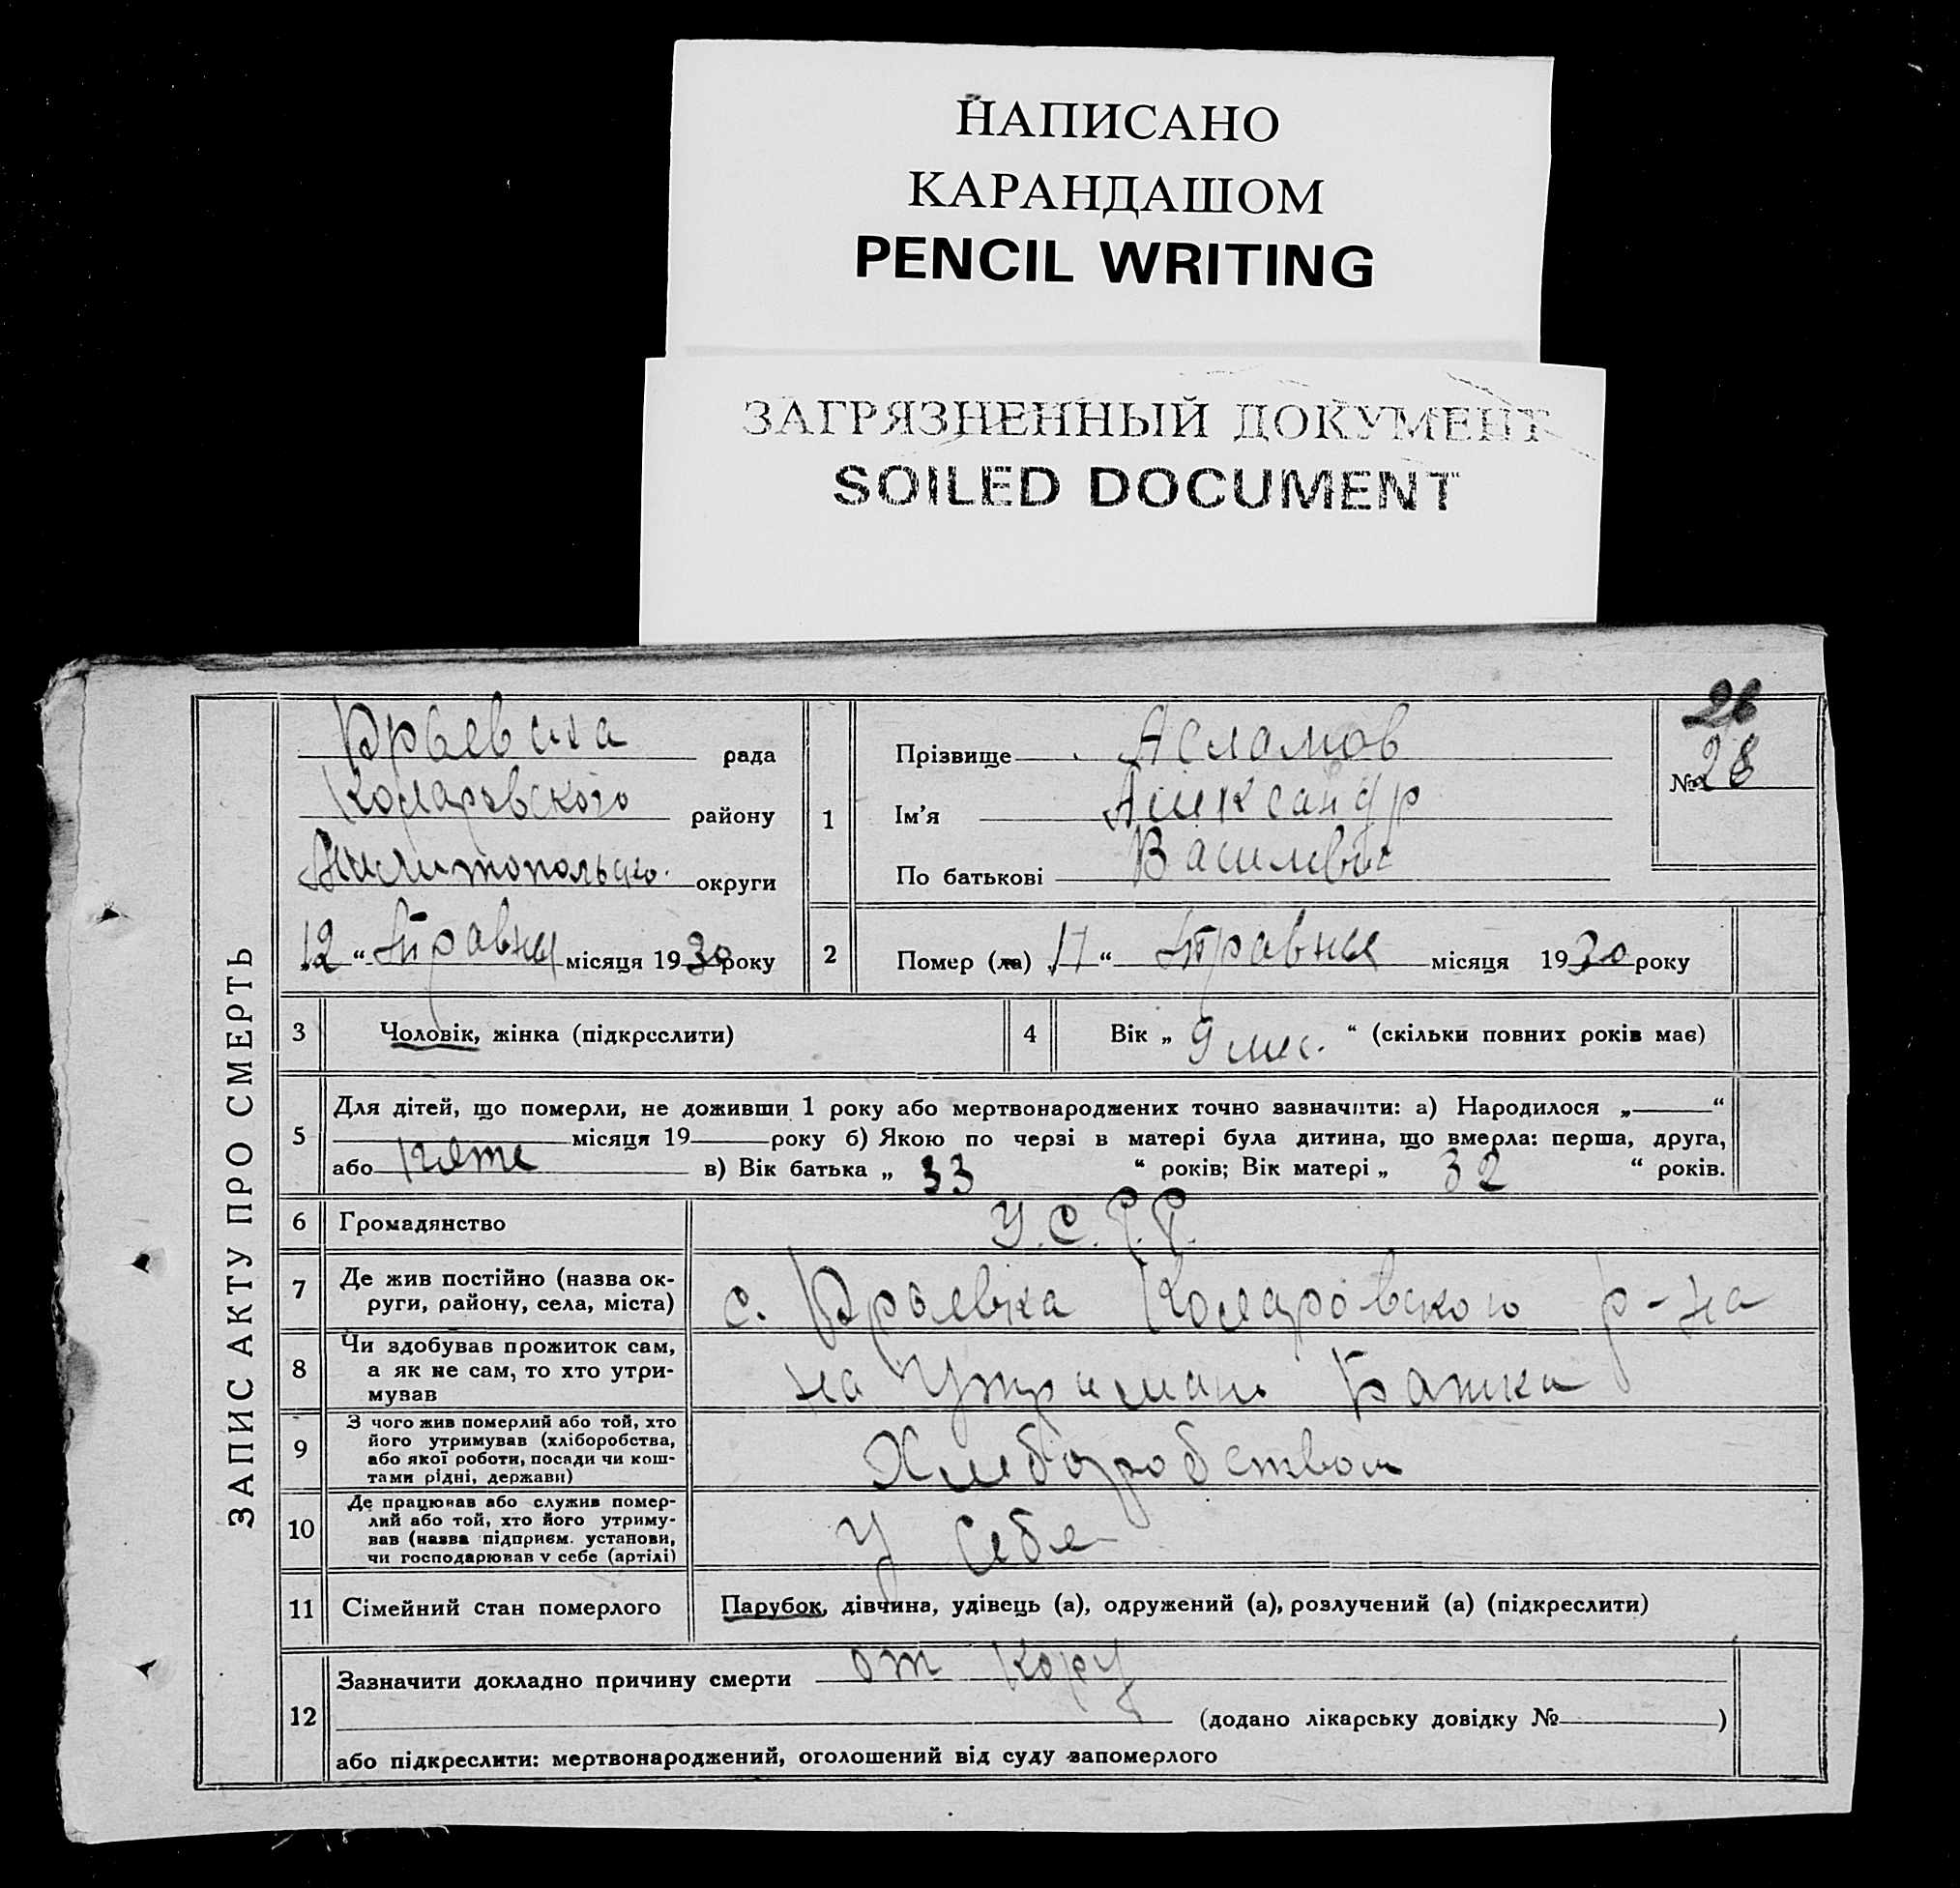 НАПИСАНО
КАРАНДАШОМ
PENCIL WRITING
ЗАГРЯЗНЕННЫЙ ДОКУМЕНТ
SOILED DOCUMENT
ЗАПИС АКТУ ПРО СМЕРТЬ
рада
Коларовского району
округи
12 “ Травня місяця 1930 року
1
Прізвище Асламов
Ім’я Александр
По батькові
26
№ 28
2
Помер (ла) “ Травня місяця 1930 року
3
Чоловік, жінка (підкреслити)
4
Вік „ 9 мис. “ (скільки повних років має)
5
Для дітей, що померли, не доживши 1 року або мертвонароджених точно зазначити: а) Народилося „ “
місяця 19 року б) Якою по черзі в матері була дитина, що вмерла: перша, друга,
або в) Вік батька „ 33 “ років; Вік матері „ 32 “ років.
6
Громадянство
У.С.Р.Р.
7
Де жив постійно (назва ок-
руги, району, села, міста)
с. Коларовского р-на
8
Чи здобував прожиток сам,
а як не сам, то хто утри-
мував
на Батька
9
З чого жив померлий або той, хто
його утримував (хліборобства,
або якої роботи, посади чи кош-
тами рідні, держави)
Хлеборобством
10
Де працював або служив помер-
лий або той, хто його утриму-
вав (назва підприєм. установи,
чи господарював у себе (артілі)
У Себе
11
Сімейний стан померлого
Парубок, дівчина, удівець (а), одружений (а), розлучений (а) (підкреслити)
12
Зазначити докладно причину смерти от кору
(додано лікарську довідку № )
або підкреслити: мертвонароджений, оголошений від суду запомерлого